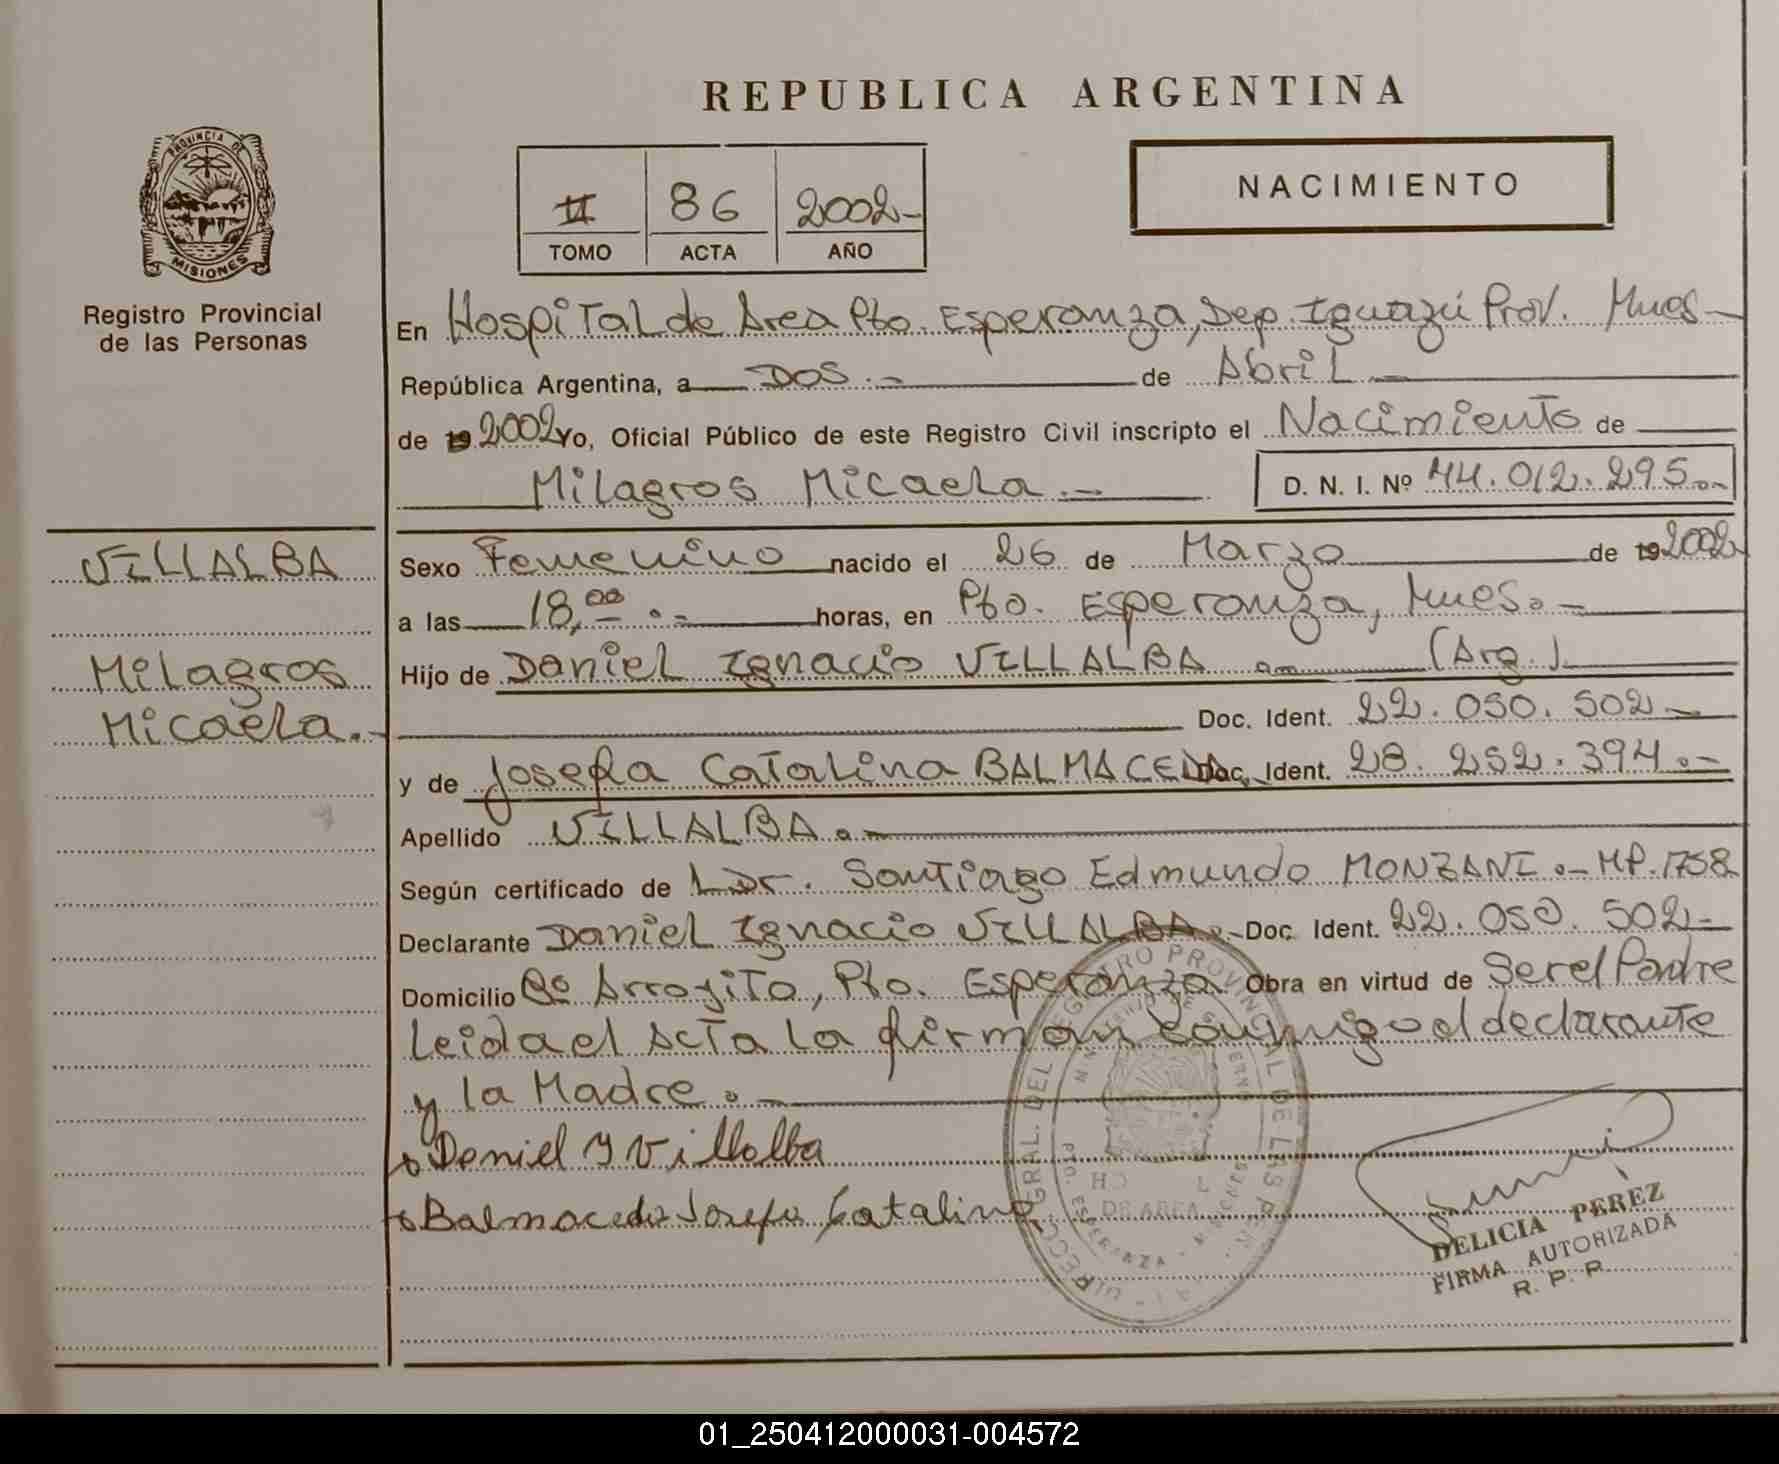 REPUBLICA ARGENTINA
PROVINCIA DE
MISIONES
Registro Provincial
de las Personas
II 86 2002-
TOMO ACTA AÑO
NACIMIENTO
En Hospital de Area Pto. Esperanza, Dep. Iguazú Prov. Mnes-
República Argentina, a Dos.- de Abril.-
de 19 2002 Yo, Oficial Público de este Registro Civil inscripto el Nacimiento de
Milagros Micaela.- D. N. I. Nº 44.012.295.-
VILLALBA
Milagros
Micaela.-
Sexo Femenino nacido el 26 de Marzo de 19 2002
a las 18,00.- horas, en Pto. Esperanza, Mnes.-
Hijo de Daniel Ignacio VILLALBA.- (Arg.)
Doc. Ident. 22.050.502-
y de Josefa Catalina BALMACEDA Doc. Ident. 28.252.394.-
Apellido VILLALBA.-
Según certificado de L Dr. Santiago Edmundo MONZANI.- MP.1758
Declarante Daniel Ignacio VILLALBA.- Doc. Ident. 22.050.502-
Domicilio Bº Arroyito, Pto. Esperanza Obra en virtud de Ser el Padre
Leida el Acta la firman conmigo el declarante
y la Madre.-
Daniel I Villalba
Balmaceda Josefa Catalina
REGISTRO PROVINCIAL DE LAS PER.
DE AREA
PTO. ESPERANZA - MISIONES
DELICIA PEREZ
FIRMA AUTORIZADA
R. P. P.
01_250412000031-004572